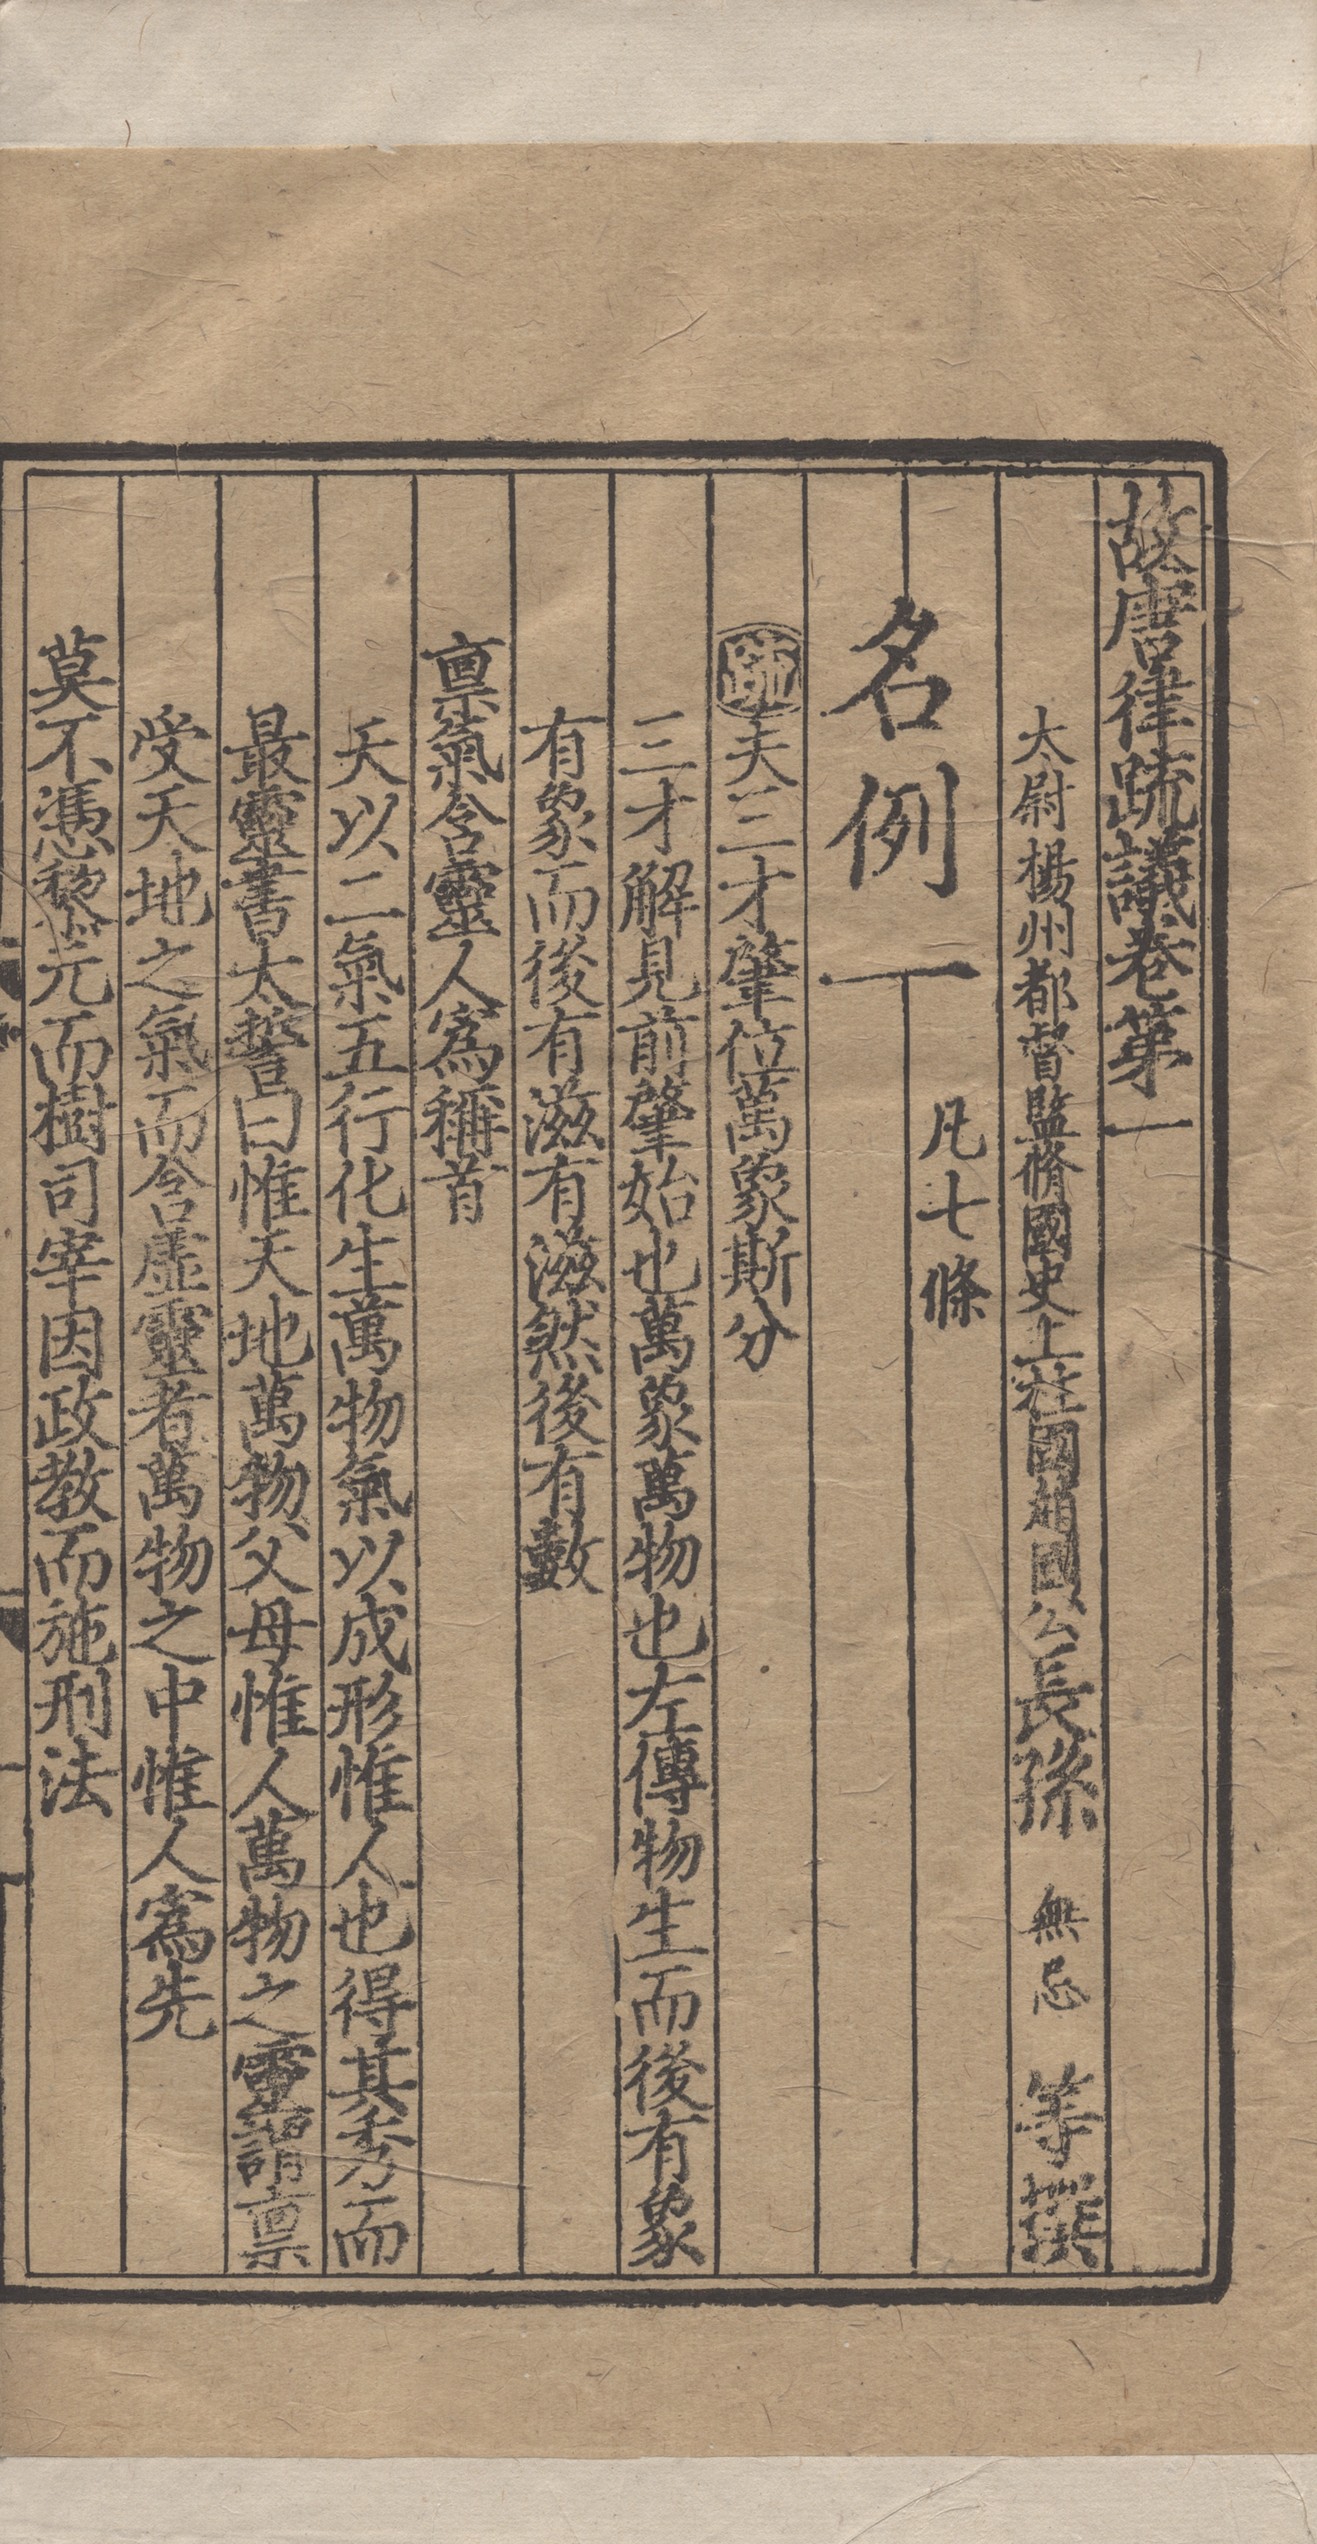 故唐律疏議卷第一
太尉楊州都督監脩國史上柱國趙國公長孫 無忌 等撰
名例一 凡七條
疏夫三才肇位萬象斯分
三才解見前肇始也萬象萬物也左傳物生而後有象
有象而後有滋有滋然後有數
稟氣含靈人為稱首
天以二氣五行化生萬物氣以成形惟人也得其秀而
最靈書太誓曰惟天地萬物父母惟人萬物之靈謂稟
受天地之氣而含虛靈者萬物之中惟人為先
莫不憑黎元而樹司宰因政教而施刑法